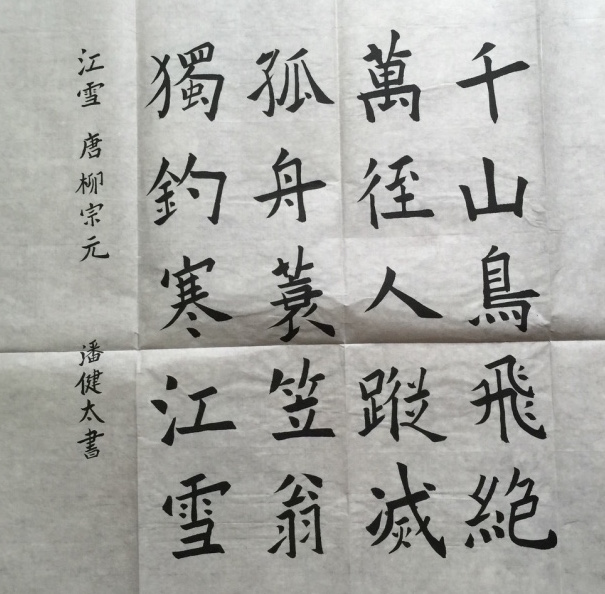 千山鳥飛絕
萬徑人蹤滅
孤舟蓑笠翁
獨釣寒江雪
江雪 唐柳宗元 潘健太書